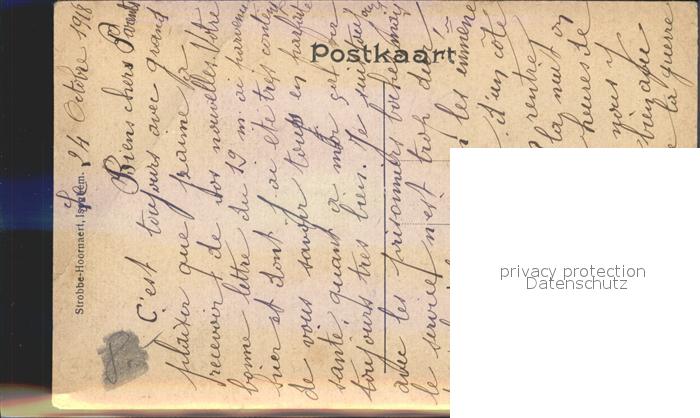 Postkaart
Strobbe-Hoornaert, Iseghem.
Le 24 Octobre 1918
Biens chers Parents
C'est toujours avec grand
plaisir que j'aime
recevoir de vos nouvelles. Votre
bonne lettre du 12 m'ai parvenu
hier et dont j'ai été très content
de vous savoir tous en parfaite
santé quant à moi
toujours très bien. Je suis
avec les prisonniers boches mais
le service n'est trop dur
les emmène
d'un côté
rentier
la nuit
heures de
vous y
bien que
la guerre
privacy protection
Datenschutz